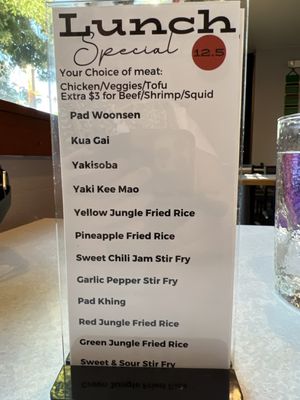 Lunch
Special
12.5
Your Choice of meat:
Chicken/Veggies/Tofu
Extra $3 for Beef/Shrimp/Squid
Pad Woonsen
Kua Gai
Yakisoba
Yaki Kee Mao
Yellow Jungle Fried Rice
Pineapple Fried Rice
Sweet Chili Jam Stir Fry
Garlic Pepper Stir Fry
Pad Khing
Red Jungle Fried Rice
Green Jungle Fried Rice
Sweet & Sour Stir Fry